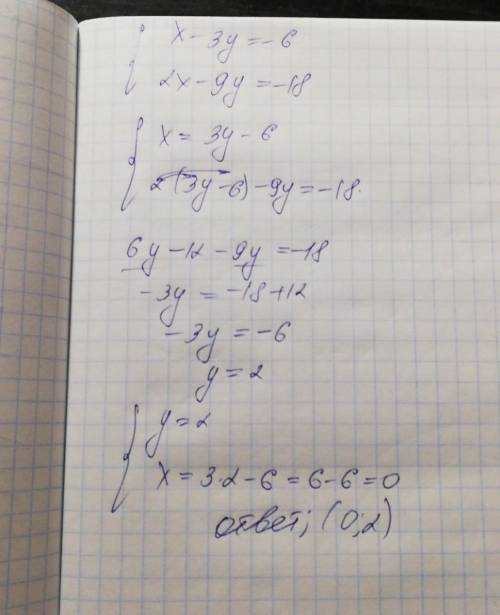 x - 3y = -6
2x - 9y = -18
x = 3y - 6
2(3y - 6) - 9y = -18.
6y - 12 - 9y = -18
-3y = -18 + 12
-3y = -6
y = 2
y = 2
x = 3·2 - 6 = 6 - 6 = 0
ответ; (0; 2)